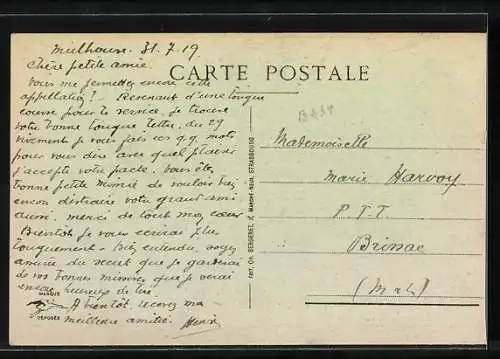 Mulhouse. 31.7.19
Chère petite amie.
CARTE POSTALE
Vous me permettez encore cette
appellation? Revenant d'une longue
course pour le service, je trouve
votre bonne longue lettre, du 29
vivement je vous fais ces qq mots
pour vous dire avec quel plaisir
j'accepte votre pacte. Vous êtes
bonne petite Mimie de vouloir bien
encore distraire votre grand ami
aussi. merci de tout mon cœur
Bientôt je vous écrirai plus
longuement. Bien entendu, soyez
assurée du secret que je garderai
de vos bonnes missives que je serai
encore heureux de lire.
A bientôt, recevez ma
meilleure amitié. Henri
MARQUE
DÉPOSÉE
IMP. CH. BERGERET, STRASBOURG
Mademoiselle
Marie Harvoy
P.T.T.
Brinac